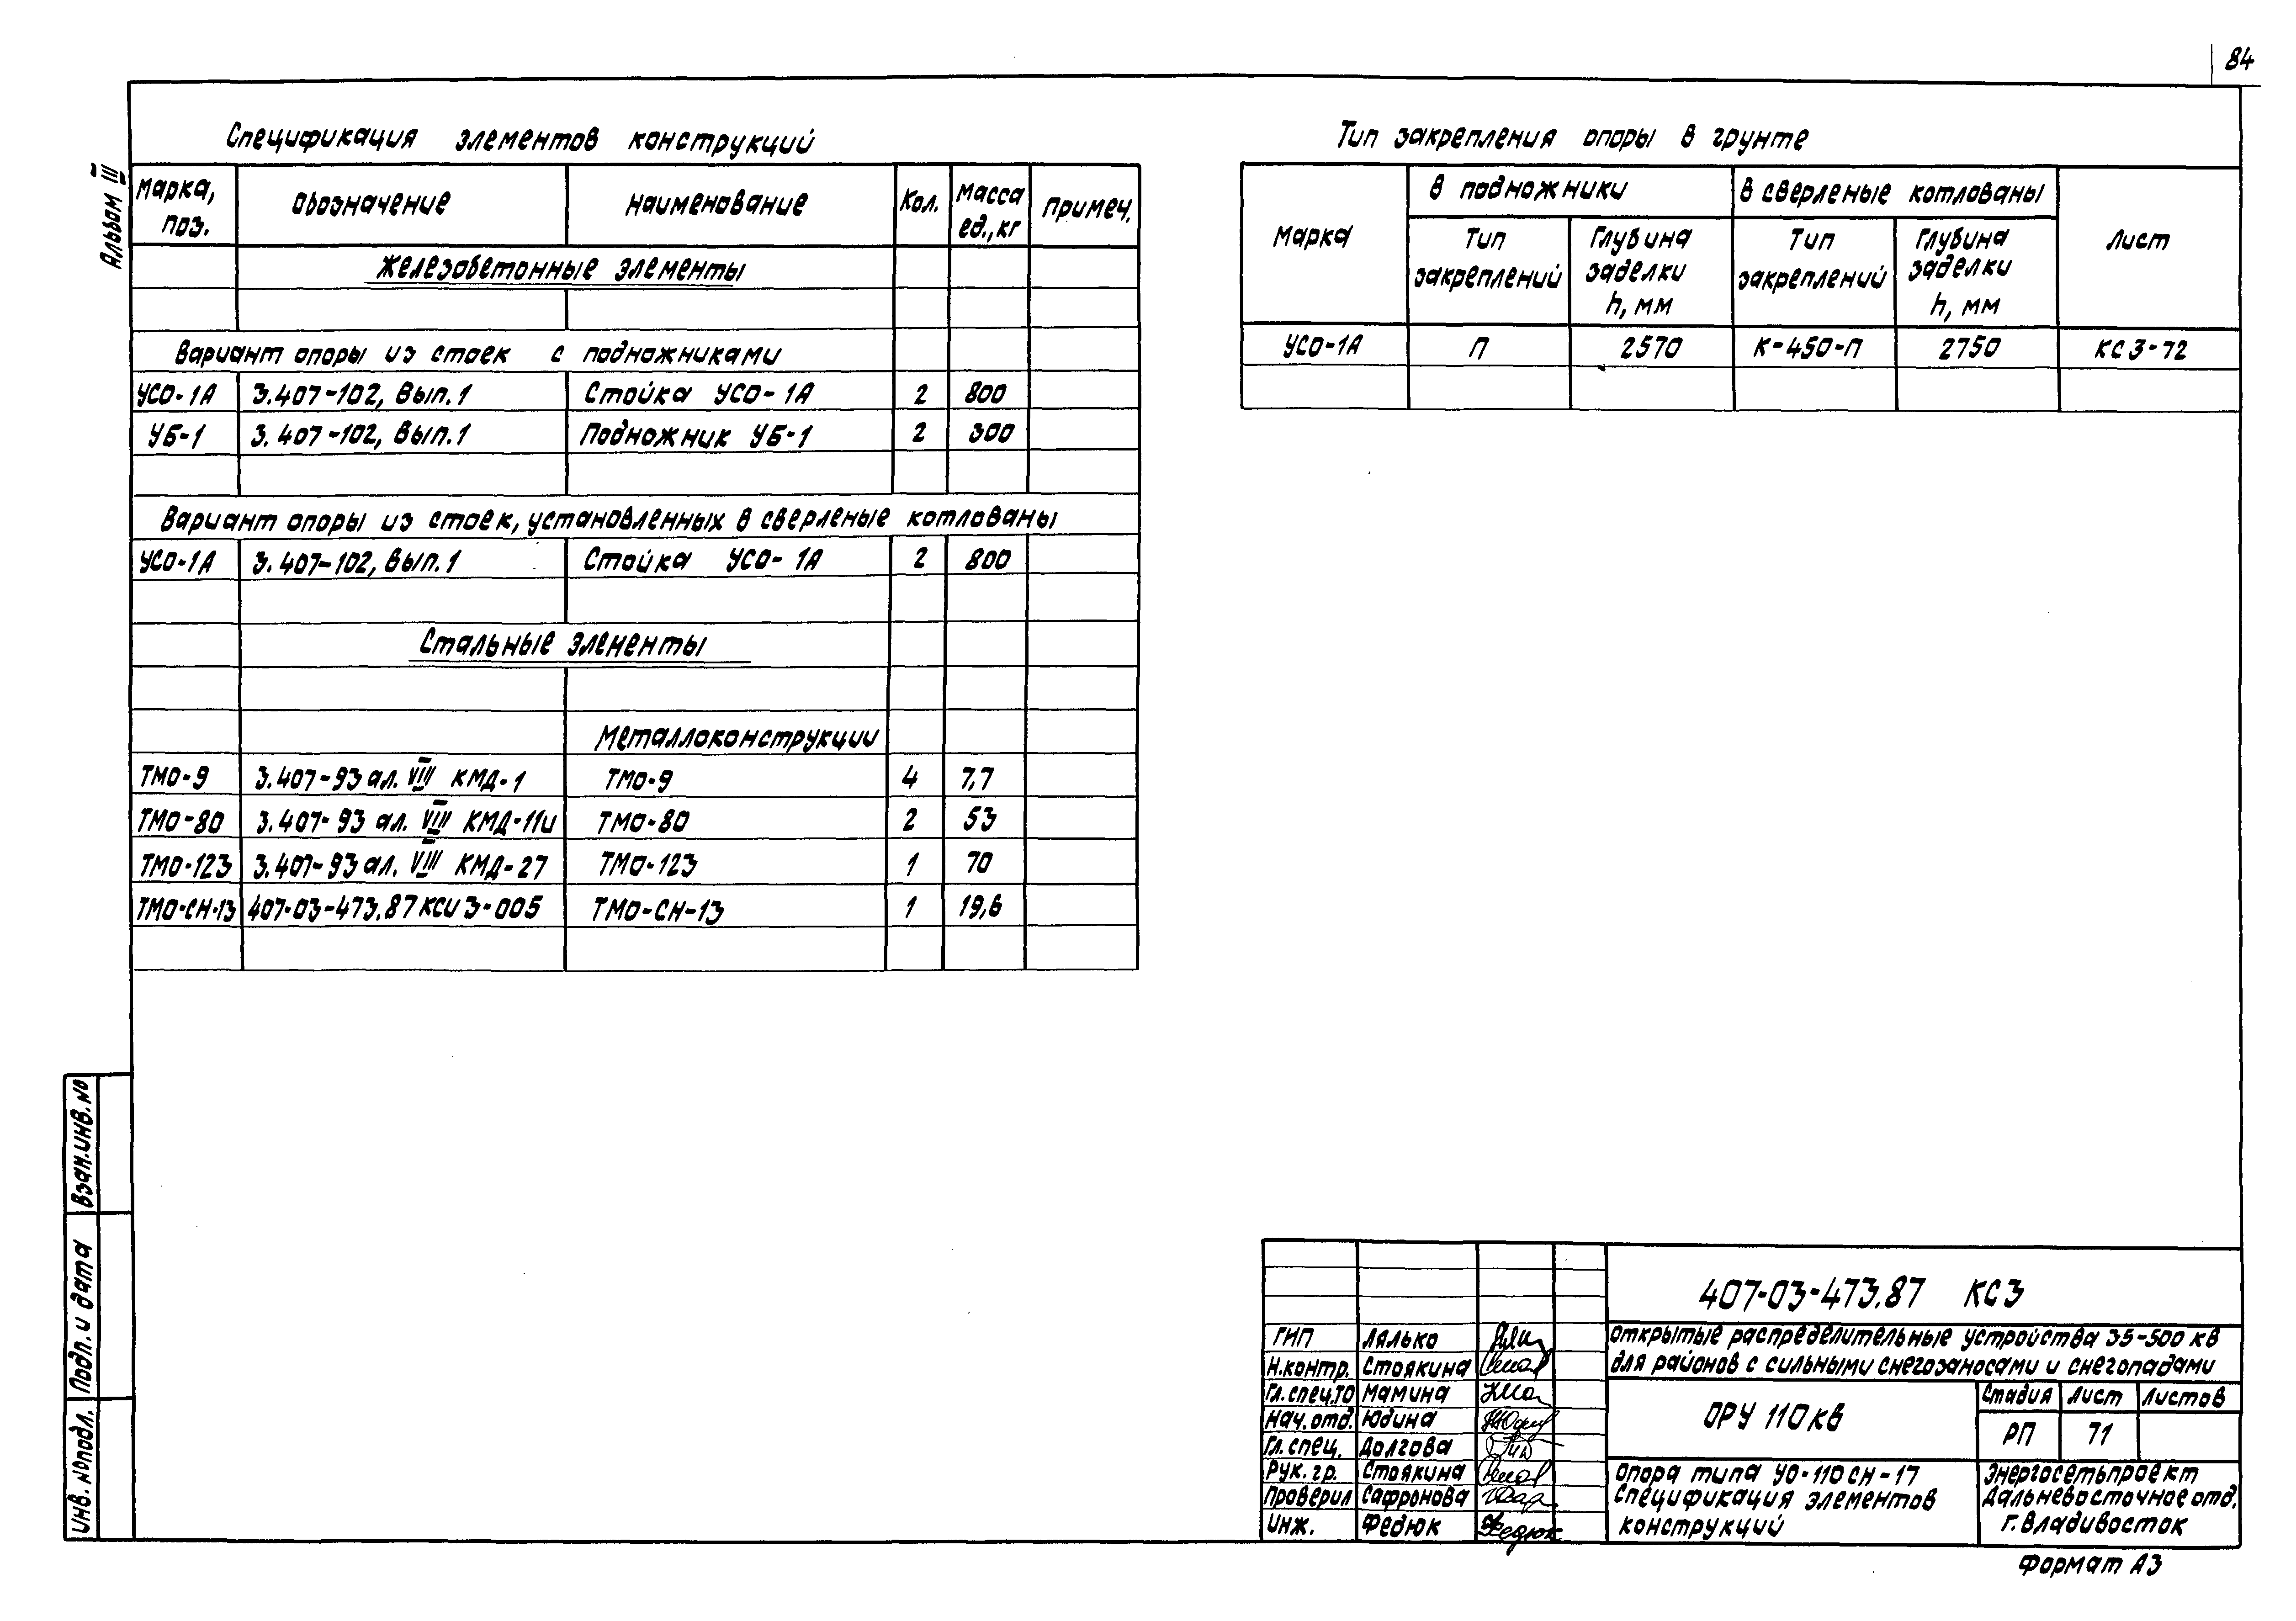 84
Альбом III
Спецификация элементов конструкций
Марка, поз. Обозначение Наименование Кол. Масса ед., кг Примеч.
Железобетонные элементы
Вариант опоры из стоек с подножниками
УСО-1А 3.407-102, вып.1 Стойка УСО-1А 2 800
УБ-1 3.407-102, вып.1 Подножник УБ-1 2 300
Вариант опоры из стоек, установленных в сверленые котлованы
УСО-1А 3.407-102, вып.1 Стойка УСО-1А 2 800
Стальные элементы
Металлоконструкции
ТМО-9 3.407-93 ал. VIII КМД-1 ТМО-9 4 7,7
ТМО-80 3.407-93 ал. VIII КМД-11и ТМО-80 2 53
ТМО-123 3.407-93 ал. VIII КМД-27 ТМО-123 1 70
ТМО-СН-13 407-03-473.87 КСИ 3-005 ТМО-СН-13 1 19,6
Тип закрепления опоры в грунте
Марка В подножники В сверленые котлованы Лист
Тип закреплений Глубина заделки h, мм Тип закреплений Глубина заделки h, мм
УСО-1А П 2570 К-450-П 2750 КС3-72
Взам.инв.№
Подп. и дата
Инв.№подл.
407-03-473.87 КС3
ГИП Лялько
Н.контр. Стоякина
Гл.спец.ТО Мамина
Нач.отд. Юдина
Гл.спец. Долгова
Рук.гр. Стоякина
Проверил Сафронова
Инж. Федюк Федюк
Открытые распределительные устройства 35-500 кВ
для районов с сильными снегозаносами и снегопадами
ОРУ 110кВ
Стадия Лист Листов
РП 71
Опора типа УО-110СН-17
Спецификация элементов
конструкций
Энергосетьпроект
Дальневосточное отд.
г.Владивосток
Формат А3